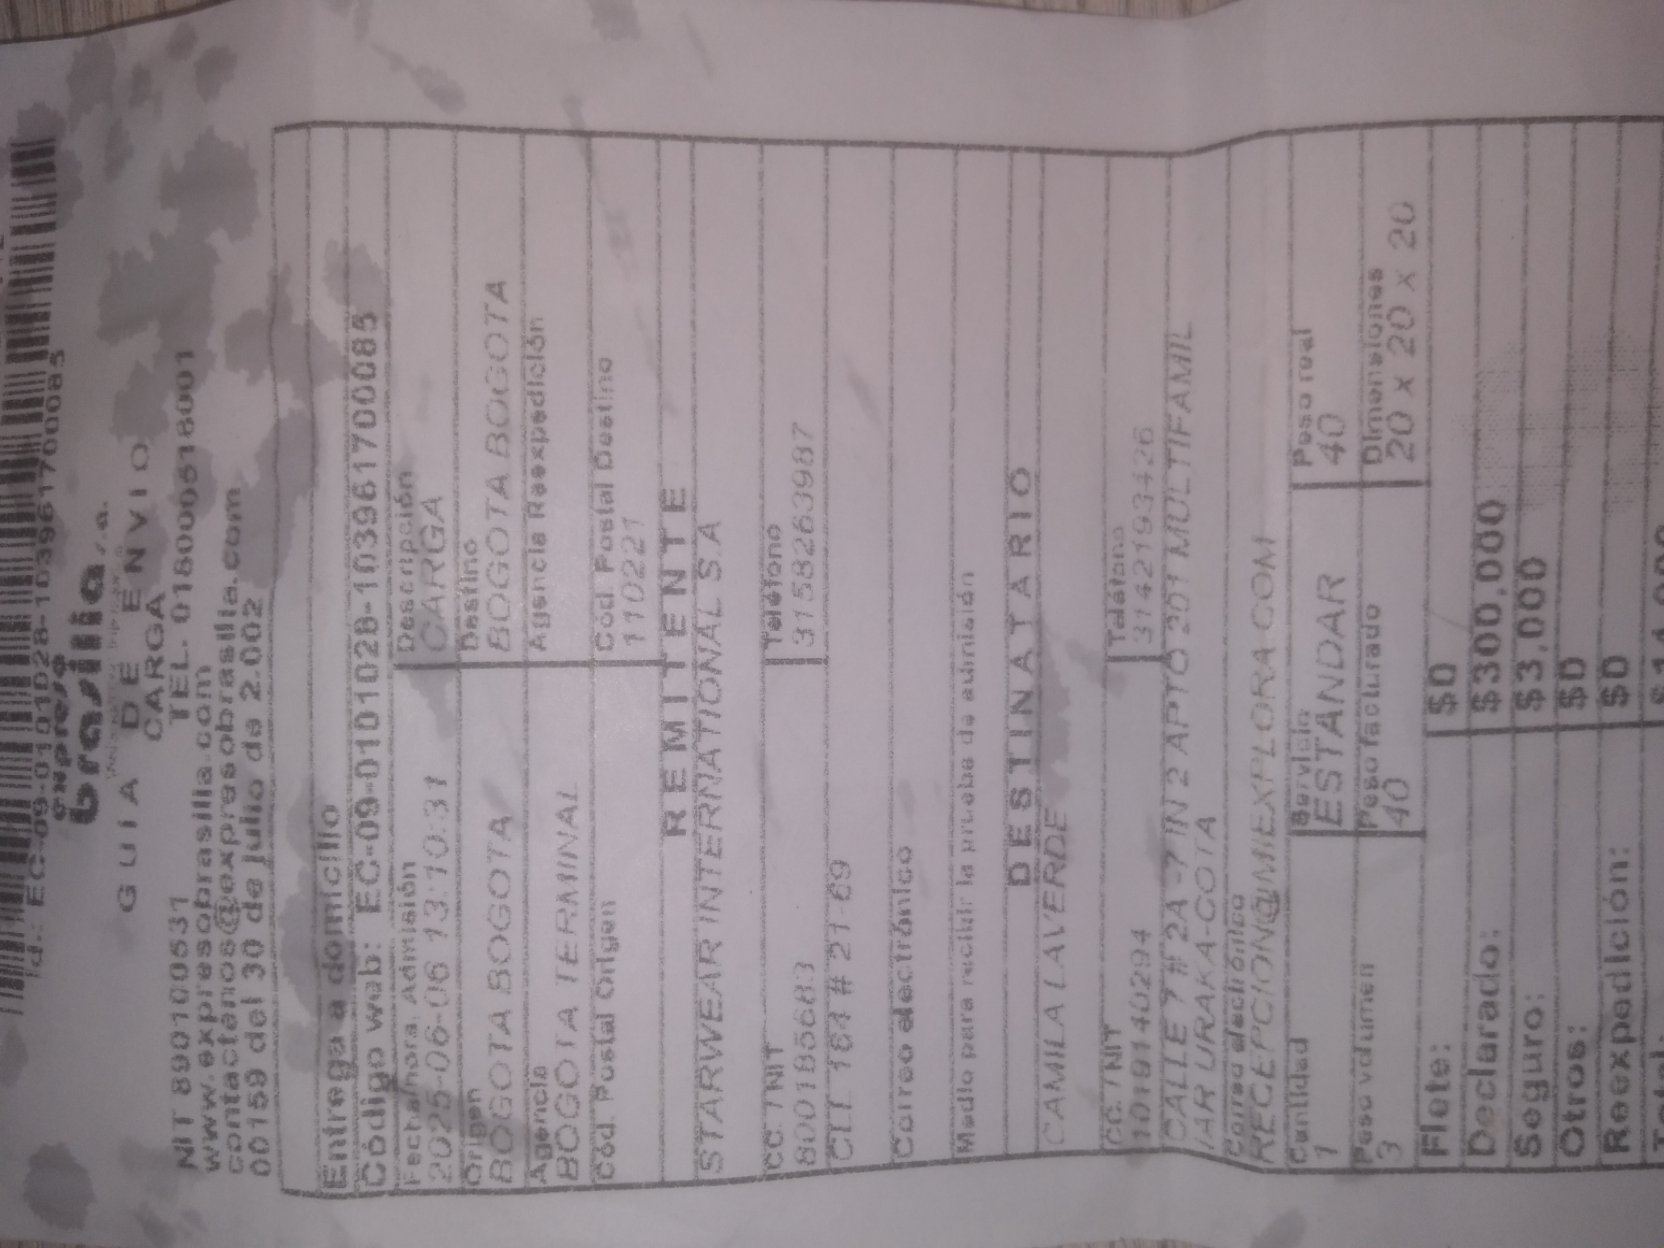 Id.: EC-09-0101028-103961700085
expreso
brasilia s.a.
GUIA DE ENVIO
CARGA
NIT 890100531 TEL. 018000618001
www.expresobrasilia.com
contactenos@expresobrasilia.com
00159 del 30 de julio de 2.002
Entrega a domicilio
Código web: EC-09-0101028-103961700085
Fecha/hora. Admisión Descripción
2025-06-06 13:10:31 CARGA
Origen Destino
BOGOTA BOGOTA BOGOTA BOGOTA
Agencia Agencia Reexpedición
BOGOTA TERMINAL
Cód. Postal Origen Cód. Postal Destino
110221
REMITENTE
STARWEAR INTERNATIONAL S.A
CC. / NIT Teléfono
8001856683 3158263987
CLL 164 # 21-69
Correo electrónico
Medio para recibir la prueba de admisión
DESTINATARIO
CAMILA LAVERDE
CC. / NIT Teléfono
1019140294 3142193426
CALLE 7 # 2A -7 IN 2 APTO 201 MULTIFAMIL
IAR URAKA-COTA
Correo electrónico
RECEPCION@MIEXPLORA.COM
Cantidad Servicio Peso real
1 ESTANDAR 40
Peso volumen Peso facturado Dimensiones
3 40 20 x 20 x 20
Flete: $0
Declarado: $300,000
Seguro: $3,000
Otros: $0
Reexpedición: $0
Total: